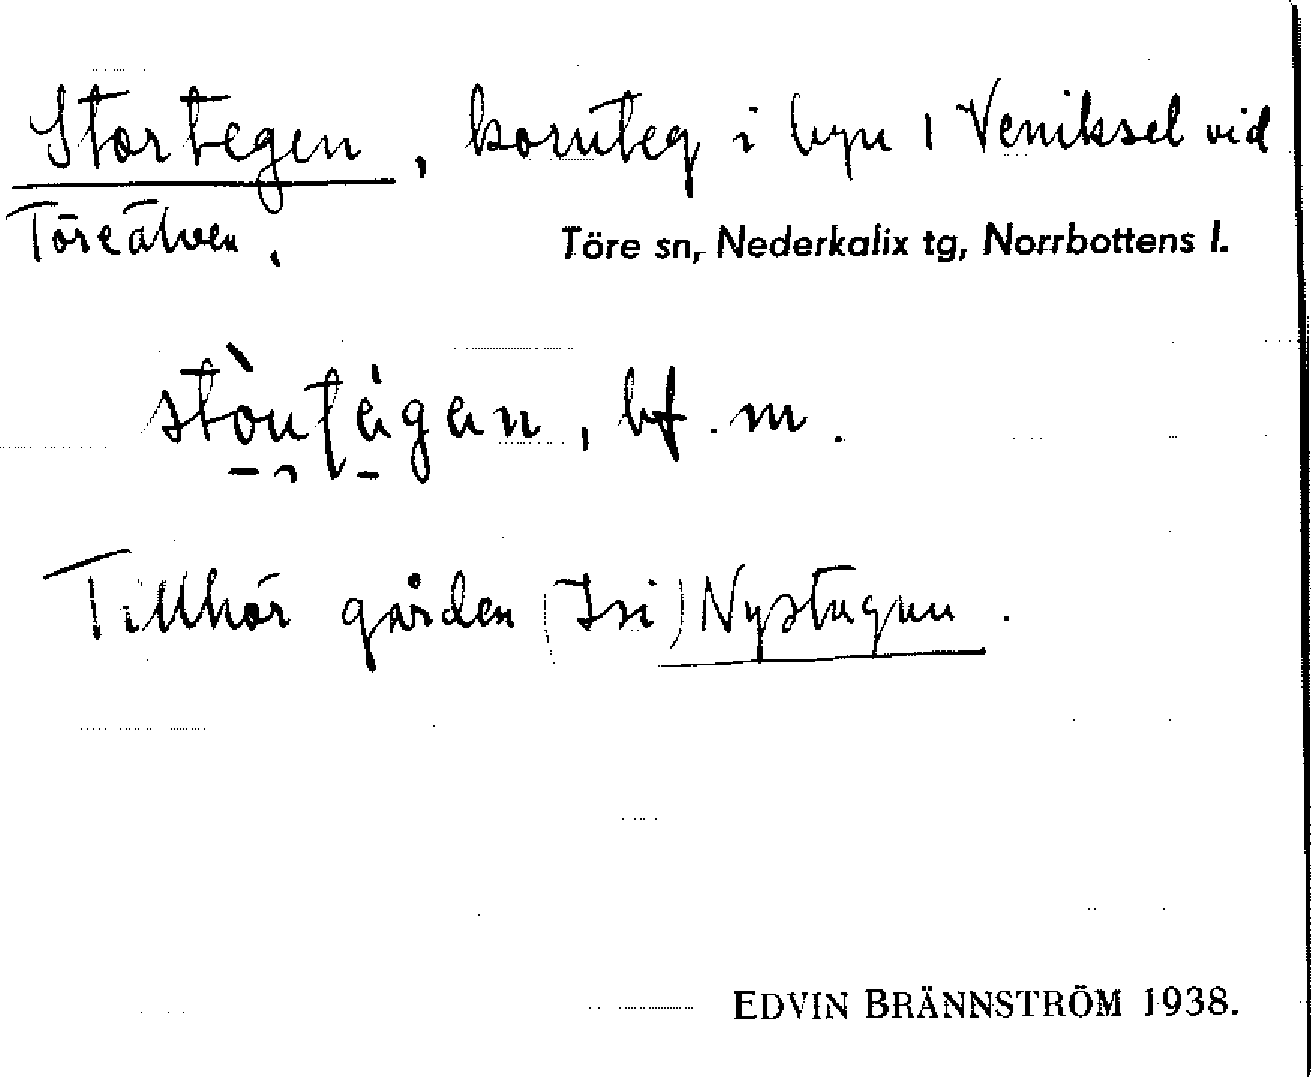 Stortegen, kornteg i byn i Veniksel vid
Töreälven.
Töre sn, Nederkalix tg, Norrbottens l.
bf. m.
Tillhör gården (Isi) Nystugun.
EDVIN BRÄNNSTRÖM 1938.